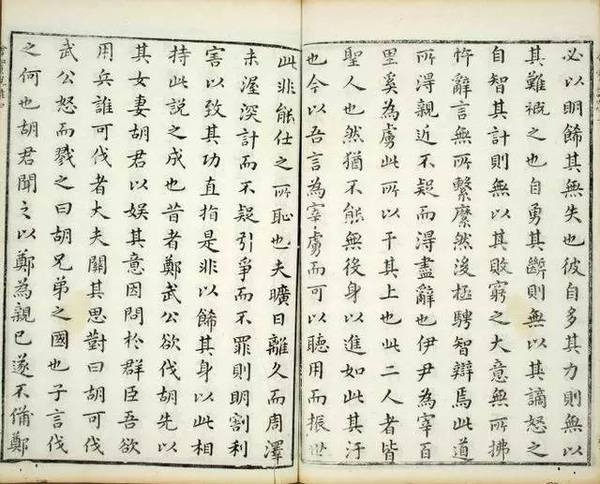 必以明飾其無失也彼自多其力則無以
其難概之也自勇其斷則無以其謫怒之
自智其計則無以其敗窮之大意無所拂
忤辭言無所繫縻然後極騁智辯焉此道
所得親近不疑而得盡辭也伊尹為宰百
里奚為虜此所以干其上也此二人者皆
聖人也然猶不能無役身以進如此其汙
也今以吾言為宰虜而可以聽用而振世
此非能仕之所恥也夫曠日離久而周澤
未渥深計而不疑引爭而不罪則明割利
害以致其功直指是非以飾其身以此相
持此說之成也昔者鄭武公欲伐胡先以
其女妻胡君以娛其意因問於群臣吾欲
用兵誰可伐者大夫關其思對曰胡可伐
武公怒而戮之曰胡兄弟之國也子言伐
之何也胡君聞之以鄭為親已遂不備鄭